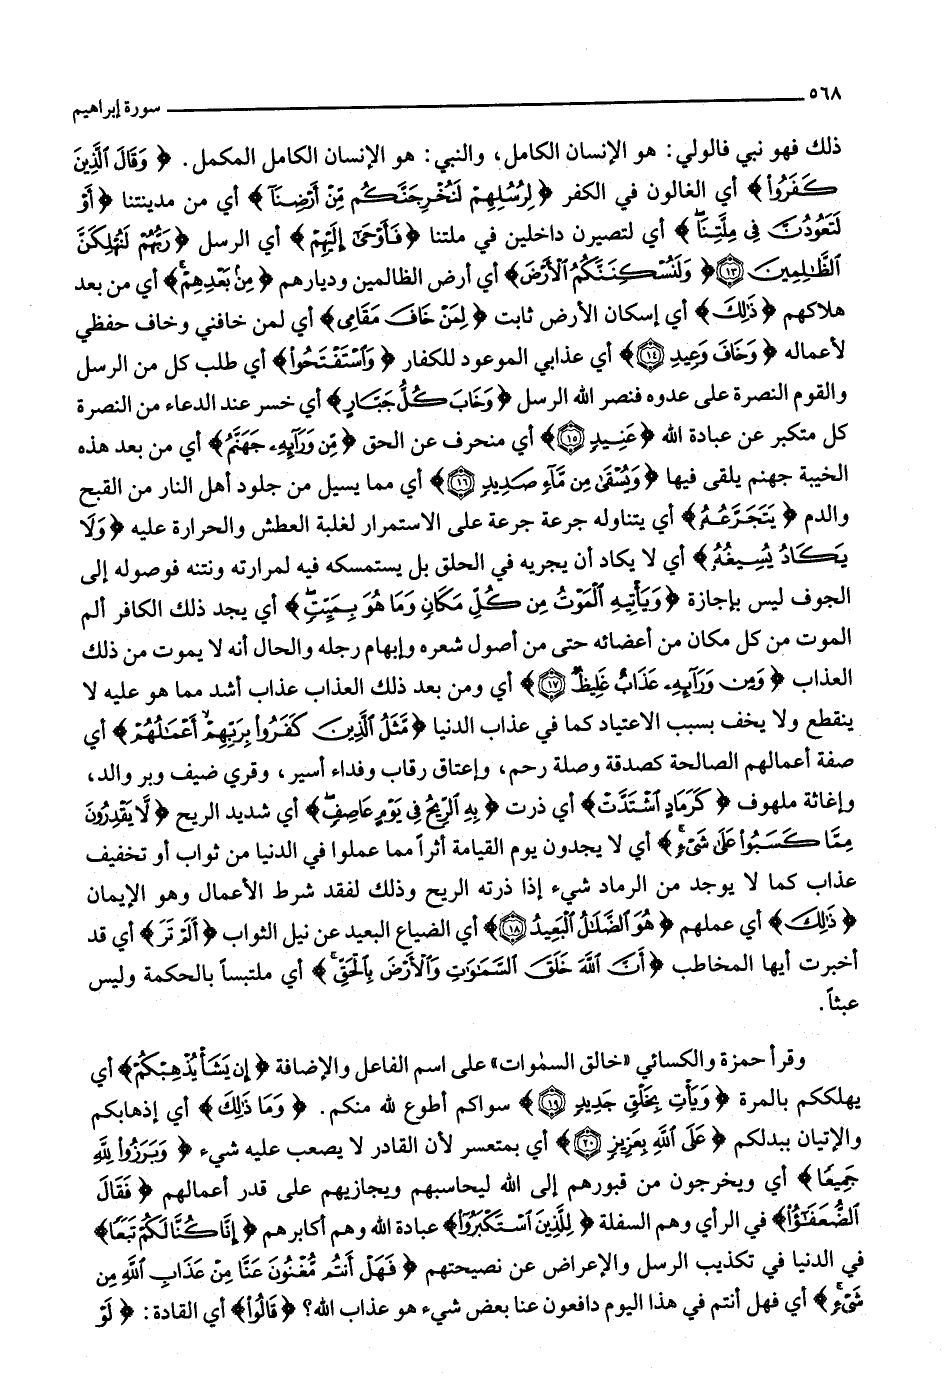 ٥٦٨ سورة إبراهيم
ذلك فهو نبي فالولي: هو الإنسان الكامل، والنبي: هو الإنسان الكامل المكمل. ﴿ وَقَالَ ٱلَّذِينَ
كَفَرُواْ﴾ أي الغالون في الكفر ﴿لِرُسُلِهِمْ لَنُخْرِجَنَّكُم مِّنْ أَرْضِنَآ﴾ أي من مدينتنا ﴿أَوْ
لَتَعُودُنَّ فِى مِلَّتِنَا ۖ﴾ أي لتصيرن داخلين في ملتنا ﴿فَأَوْحَىٰٓ إِلَيْهِمْ﴾ أي الرسل ﴿رَبُّهُمْ لَنُهْلِكَنَّ
ٱلظَّـٰلِمِينَ ١٣﴾ ﴿ وَلَنُسْكِنَنَّكُمُ ٱلْأَرْضَ﴾ أي أرض الظالمين وديارهم ﴿مِنۢ بَعْدِهِمْ ۚ﴾ أي من بعد
هلاكهم ﴿ذَٰلِكَ﴾ أي إسكان الأرض ثابت ﴿لِمَنْ خَافَ مَقَامِى﴾ أي لمن خافني وخاف حفظي
لأعماله ﴿ وَخَافَ وَعِيدِ ١٤﴾ أي عذابي الموعود للكفار ﴿ وَٱسْتَفْتَحُواْ﴾ أي طلب كل من الرسل
والقوم النصرة على عدوه فنصر الله الرسل ﴿وَخَابَ كُلُّ جَبَّارٍ﴾ أي خسر عند الدعاء من النصرة
كل متكبر عن عبادة الله ﴿عَنِيدٍ ١٥﴾ أي منحرف عن الحق ﴿مِّن وَرَآئِهِۦ جَهَنَّمُ﴾ أي من بعد هذه
الخيبة جهنم يلقى فيها ﴿وَيُسْقَىٰ مِن مَّآءٍ صَدِيدٍ ١٦﴾ أي مما يسيل من جلود أهل النار من القيح
والدم ﴿ يَتَجَرَّعُهُۥ﴾ أي يتناوله جرعة جرعة على الاستمرار لغلبة العطش والحرارة عليه ﴿وَلَا
يَكَادُ يُسِيغُهُۥ﴾ أي لا يكاد أن يجريه في الحلق بل يستمسكه فيه لمرارته ونتنه فوصوله إلى
الجوف ليس بإجازة ﴿وَيَأْتِيهِ ٱلْمَوْتُ مِن كُلِّ مَكَانٍ وَمَا هُوَ بِمَيِّتٍ ۖ﴾ أي يجد ذلك الكافر ألم
الموت من كل مكان من أعضائه حتى من أصول شعره وإبهام رجله والحال أنه لا يموت من ذلك
العذاب ﴿ وَمِن وَرَآئِهِۦ عَذَابٌ غَلِيظٌ ١٧﴾ أي ومن بعد ذلك العذاب عذاب أشد مما هو عليه لا
ينقطع ولا يخف بسبب الاعتياد كما في عذاب الدنيا ﴿مَّثَلُ ٱلَّذِينَ كَفَرُواْ بِرَبِّهِمْ ۖ أَعْمَـٰلُهُمْ﴾ أي
صفة أعمالهم الصالحة كصدقة وصلة رحم، وإعتاق رقاب وفداء أسير، وقري ضيف وبر والد،
وإغاثة ملهوف ﴿ كَرَمَادٍ ٱشْتَدَّتْ﴾ أي ذرت ﴿ بِهِ ٱلرِّيحُ فِى يَوْمٍ عَاصِفٍ ۖ﴾ أي شديد الريح ﴿لَّا يَقْدِرُونَ
مِمَّا كَسَبُواْ عَلَىٰ شَىْءٍ ۚ﴾ أي لا يجدون يوم القيامة أثراً مما عملوا في الدنيا من ثواب أو تخفيف
عذاب كما لا يوجد من الرماد شيء إذا ذرته الريح وذلك لفقد شرط الأعمال وهو الإيمان
﴿ ذَٰلِكَ﴾ أي عملهم ﴿ هُوَ ٱلضَّلَـٰلُ ٱلْبَعِيدُ ١٨﴾ أي الضياع البعيد عن نيل الثواب ﴿أَلَمْ تَرَ﴾ أي قد
أخبرت أيها المخاطب ﴿أَنَّ ٱللَّهَ خَلَقَ ٱلسَّمَـٰوَٰتِ وَٱلْأَرْضَ بِٱلْحَقِّ ۚ﴾ أي ملتبساً بالحكمة وليس
عبثاً.
وقرأ حمزة والكسائي «خالق السمٰوات» على اسم الفاعل والإضافة ﴿ إِن يَشَأْ يُذْهِبْكُمْ﴾ أي
يهلككم بالمرة ﴿ وَيَأْتِ بِخَلْقٍ جَدِيدٍ ١٩﴾ سواكم أطوع لله منكم. ﴿ وَمَا ذَٰلِكَ﴾ أي إذهابكم
والإتيان ببدلكم ﴿ عَلَى ٱللَّهِ بِعَزِيزٍ ٢٠﴾ أي بمتعسر لأن القادر لا يصعب عليه شيء ﴿ وَبَرَزُواْ لِلَّهِ
جَمِيعًا﴾ أي ويخرجون من قبورهم إلى الله ليحاسبهم ويجازيهم على قدر أعمالهم ﴿ فَقَالَ
ٱلضُّعَفَـٰٓؤُاْ﴾ في الرأي وهم السفلة ﴿ لِلَّذِينَ ٱسْتَكْبَرُوٓاْ﴾ عبادة الله وهم أكابرهم ﴿ إِنَّا كُنَّا لَكُمْ تَبَعًا﴾
في الدنيا في تكذيب الرسل والإعراض عن نصيحتهم ﴿ فَهَلْ أَنتُم مُّغْنُونَ عَنَّا مِنْ عَذَابِ ٱللَّهِ مِن
شَىْءٍ ۚ﴾ أي فهل أنتم في هذا اليوم دافعون عنا بعض شيء هو عذاب الله؟ ﴿قَالُواْ﴾ أي القادة: ﴿ لَوْ